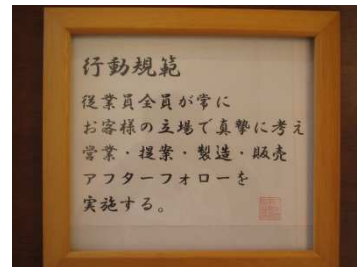 行動規範
従業員全員が常に
お客様の立場で真摯に考え
営業・提案・製造・販売
アフターフォローを
実施する。